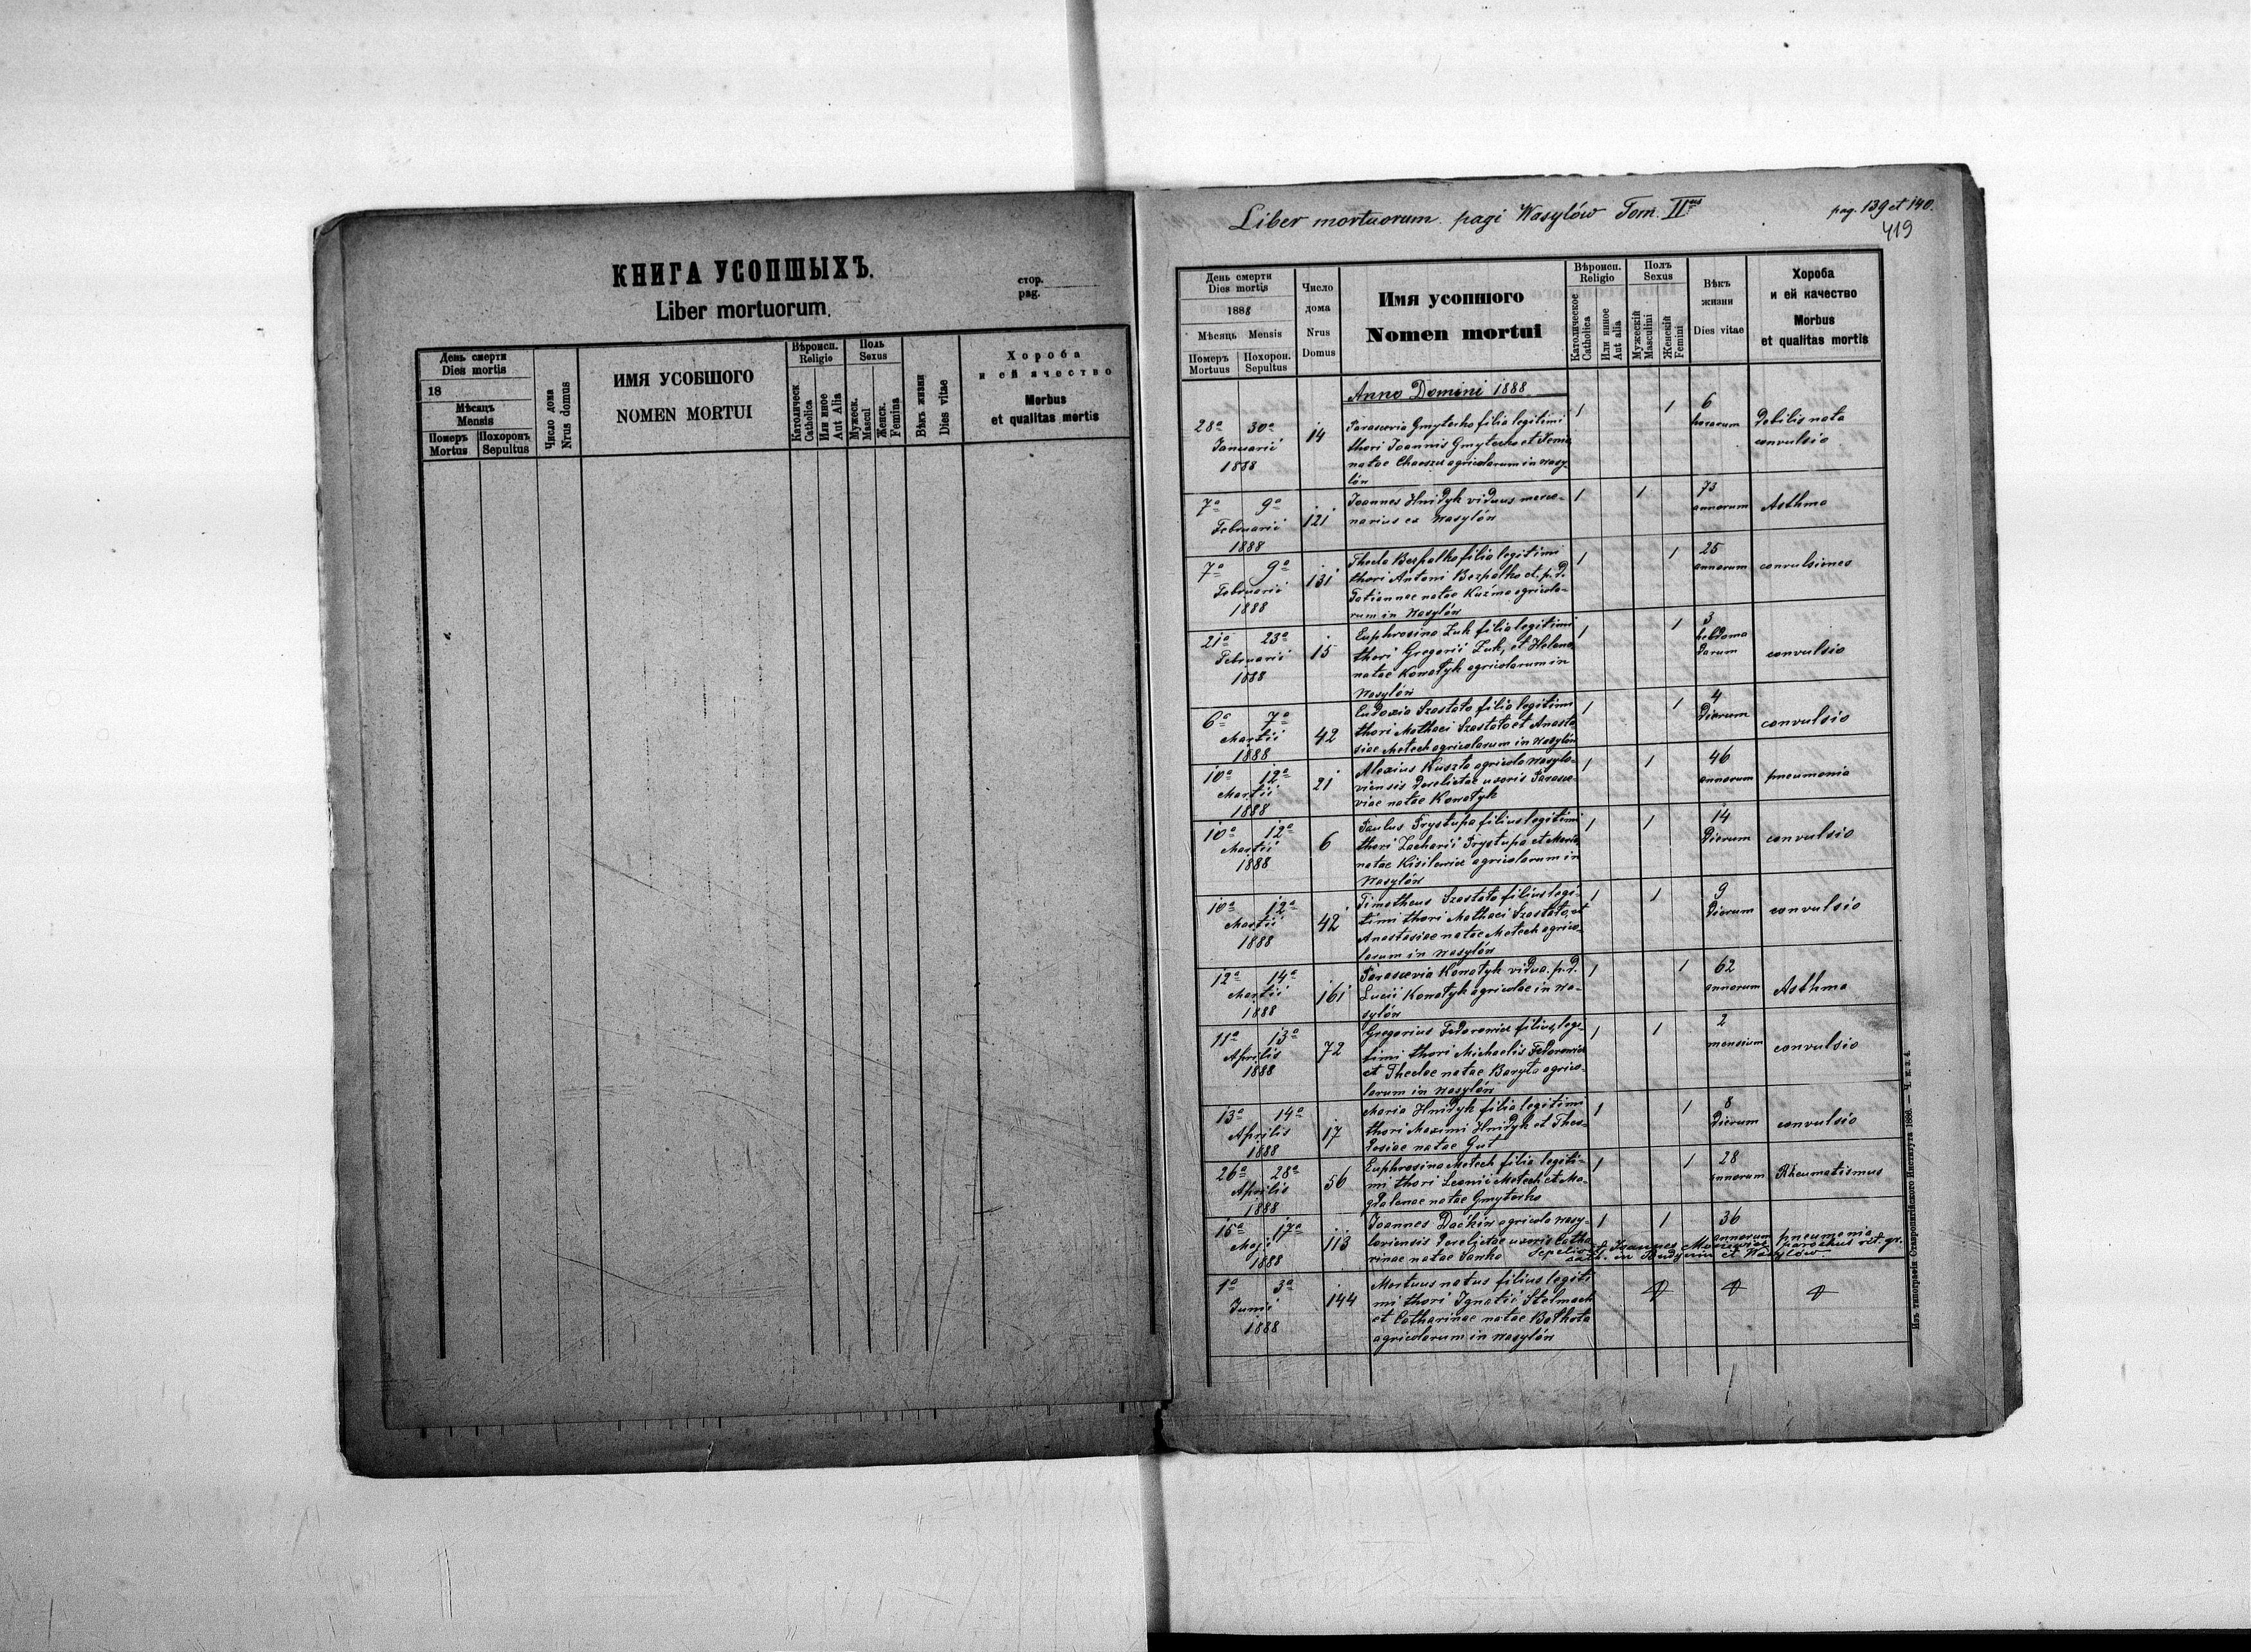 КНИГА УСОПШЫХЪ.
Liber mortuorum.
стор.
pag.
День смерти
Dies mortis
18
Мѣсяць
Mensis
Померъ
Mortus
Похоронъ
Sepultus
Число дома
Nrus domus
ИМЯ УСОБШОГО
NOMEN MORTUI
Вѣроисп.
Religio
Католическ
Catholica
Или иное
Aut Alia
Полъ
Sexus
Мужеск.
Mascul
Женск.
Femina
Вѣкъ жизни
Dies vitae
Хороба
и ей ячество
Morbus
et qualitas mortis
Liber mortuorum pagi Wasylów Tom. IIus
pag. 139 et 140.
419
День смерти
Dies mortis
1888
Мѣсяць Mensis
Померъ
Mortuus
Похорон.
Sepultus
Число
дома
Nrus
Domus
Имя усопшого
Nomen mortui
Вѣроисп.
Religio
Католическое
Catholica
Или инное
Aut alia
Полъ
Sexus
Мужескій
Masculini
Женскій
Femini
Вѣкъ
жизни
Dies vitae
Хороба
и ей качество
Morbus
et qualitas mortis
Anno Domini 1888
28a 30a
Januarii
1888
14
Parascevia Gmyterko filia legitimi
thori Joannis Gmyterko et
natae agricolarum in Wasy-
lów
1
1
6
horarum
Debilis nata
convulsio
7a 9a
Februarii
1888
121
Joannes Hnidyk viduus merce-
narius ex Wasylów
1
1
73
annorum
Asthma
7a 9a
Februarii
1888
131
Thecla Bezpalko filia legitimi
thori Antoni Bezpalko et p. d.
Tatiannae natae Kuzma agricola-
rum in Wasylów
1
1
25
annorum
convulsiones
21a 23a
Februarii
1888
15
Euphrosina Zuk filia legitimi
thori Gregorii Zuk, et Helena
natae Konatyk agricolarum in
Wasylów
1
1
3
hebdoma
darum
convulsio
6a 7a
Martii
1888
42
Eudoxia Szostato filia legitimi
thori Mathaei Szostato et Anasta
siae Motech agricolarum in Wasylów
1
1
4
dierum
convulsio
10a 12a
Martii
1888
21
Alexius Kuszto agricola Wasylo-
viensis derelictae uxoris Parasce-
viae natae Konatyk
1
1
46
annorum
pneumonia
10a 12a
Martii
1888
6
Paulus Prystupa filius legitimi
thori Zacharii Prystupa et Maria
natae Kisilewicz agricolarum in
Wasylów
1
1
14
dierum
convulsio
10a 12a
Martii
1888
42
Timotheus Szostato filius legi-
timi thori Mathaei Szostato et
Anastasiae natae Motech agrico-
larum in Wasylów
1
1
9
dierum
convulsio
12a 14a
Martii
1888
161
Parascevia Konatyk vidua p. d.
Lucii Konatyk agricolae in Wa-
sylów
1
1
62
annorum
Asthma
11a 13a
Aprilis
1888
72
Gregorius Fedorowicz filius legi-
timi thori Michaelis Fedorowicz
et Theclae natae Baryto agrico-
larum in Wasylów
1
1
2
mensium
convulsio
13a 14a
Aprilis
1888
17
Maria Hnidyk filia legitimi
thori Maximi Hnidyk et Theo-
dosiae natae Gut
1
1
8
dierum
convulsio
26a 28a
Aprilis
1888
56
Euphrosina Motech filia legiti-
mi thori Leonii Motech et Ma-
gdalenae natae Gmyterko
1
1
28
annorum
Rheumatismus
15a 17a
Maji
1888
113
Joannes Daćkiw agricola Wasy-
loviensis derelictae uxoris Catha
rinae natae Sanko
1
1
36
annorum
pneumonia
Sepelivit Joannes parochus rit. gr.
cath. in et Wasylów.
1a 3a
Junii
1888
144
Mortuus natus filius legiti
mi thori Ignatii Stelmach
et Catharinae natae Bothota
agricolarum in Wasylów
Изъ типографіи Ставропигійского Института 1886. — Ч. к. з. 4.